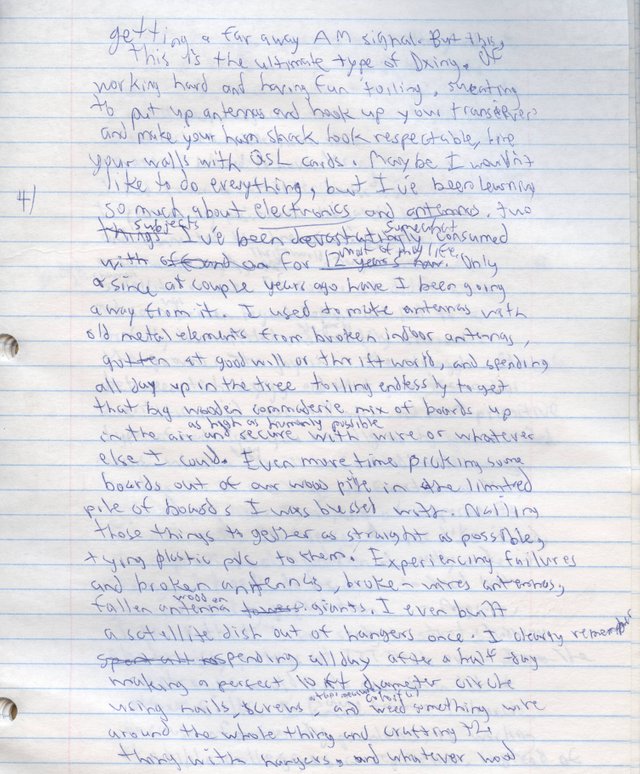 getting a far away AM signal. But this,
this is the ultimate type of Dxing. Of
working hard and having fun toiling, sweating
to put up antennas and hook up your transceivers
and make your ham shack look respectable, line
your walls with QSL cards. Maybe I wouldn't
like to do everything, but I've been learning
4/
so much about electronics and antennas, two
subjects somewhat
things I've been devastatingly consumed
most of my life.
with off and on for 12 years now. Only
since a couple years ago have I been going
away from it. I used to make antennas with
old metal elements from broken indoor antennas,
gotten at good will or thrift world, and spending
all day up in the tree toiling endlessly to get
that big wooden mix of boards up
as high as humanly possible
in the air and secure with wire or whatever
else I could. Even more time picking some
boards out of our wood pile in the limited
pile of boards I was blessed with. Nailing
those things together as straight as possible,
tying plastic pvc to them. Experiencing failures
and broken antennas, broken wires antennas,
wooden
fallen antenna towers giants. I even built
a satellite dish out of hangers once. I clearly remember
spent all spending all day after a half-day
making a perfect 10 ft diameter circle
colorful
using nails, screws, and weed something wire
around the whole thing and crafting
thing with hangers, and whatever wood